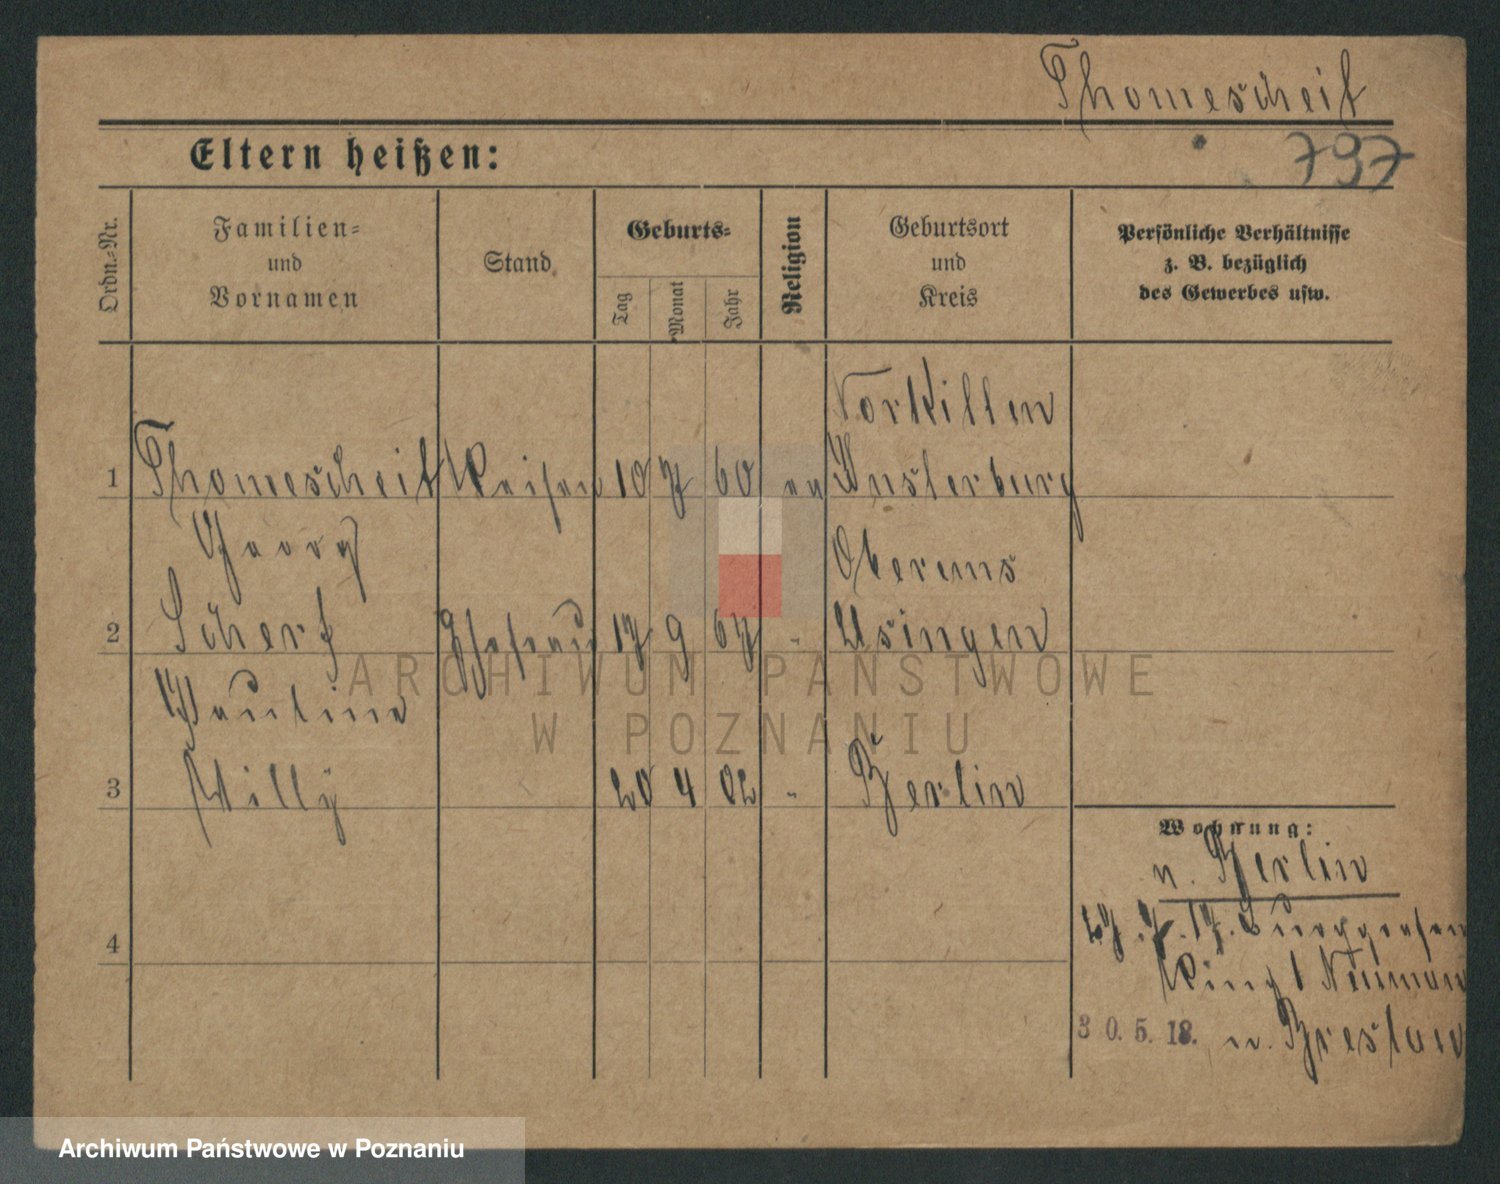 Thomescheit
Eltern heißen:
797
Ordn.-Nr.
Familien-
und
Vornamen
Stand
Geburts-
Tag
Monat
Jahr
Religion
Geburtsort
und
Kreis
Persönliche Verhältnisse
z. B. bezüglich
des Gewerbes usw.
Norkitten
1 Thomescheit 10 7 60 ev Insterburg
Georg
Oberems
2 Scherf Ehefrau 17 9 67 " Usingen
Pauline
3 Willy 20 4 02 " Berlin
Wohnung:
n. Berlin
27. 7. 17. Burggrafen
Ring 1 Neumann
4
30. 5. 18. n. Breslau
ARCHIWUM PAŃSTWOWE
W POZNANIU
Archiwum Państwowe w Poznaniu